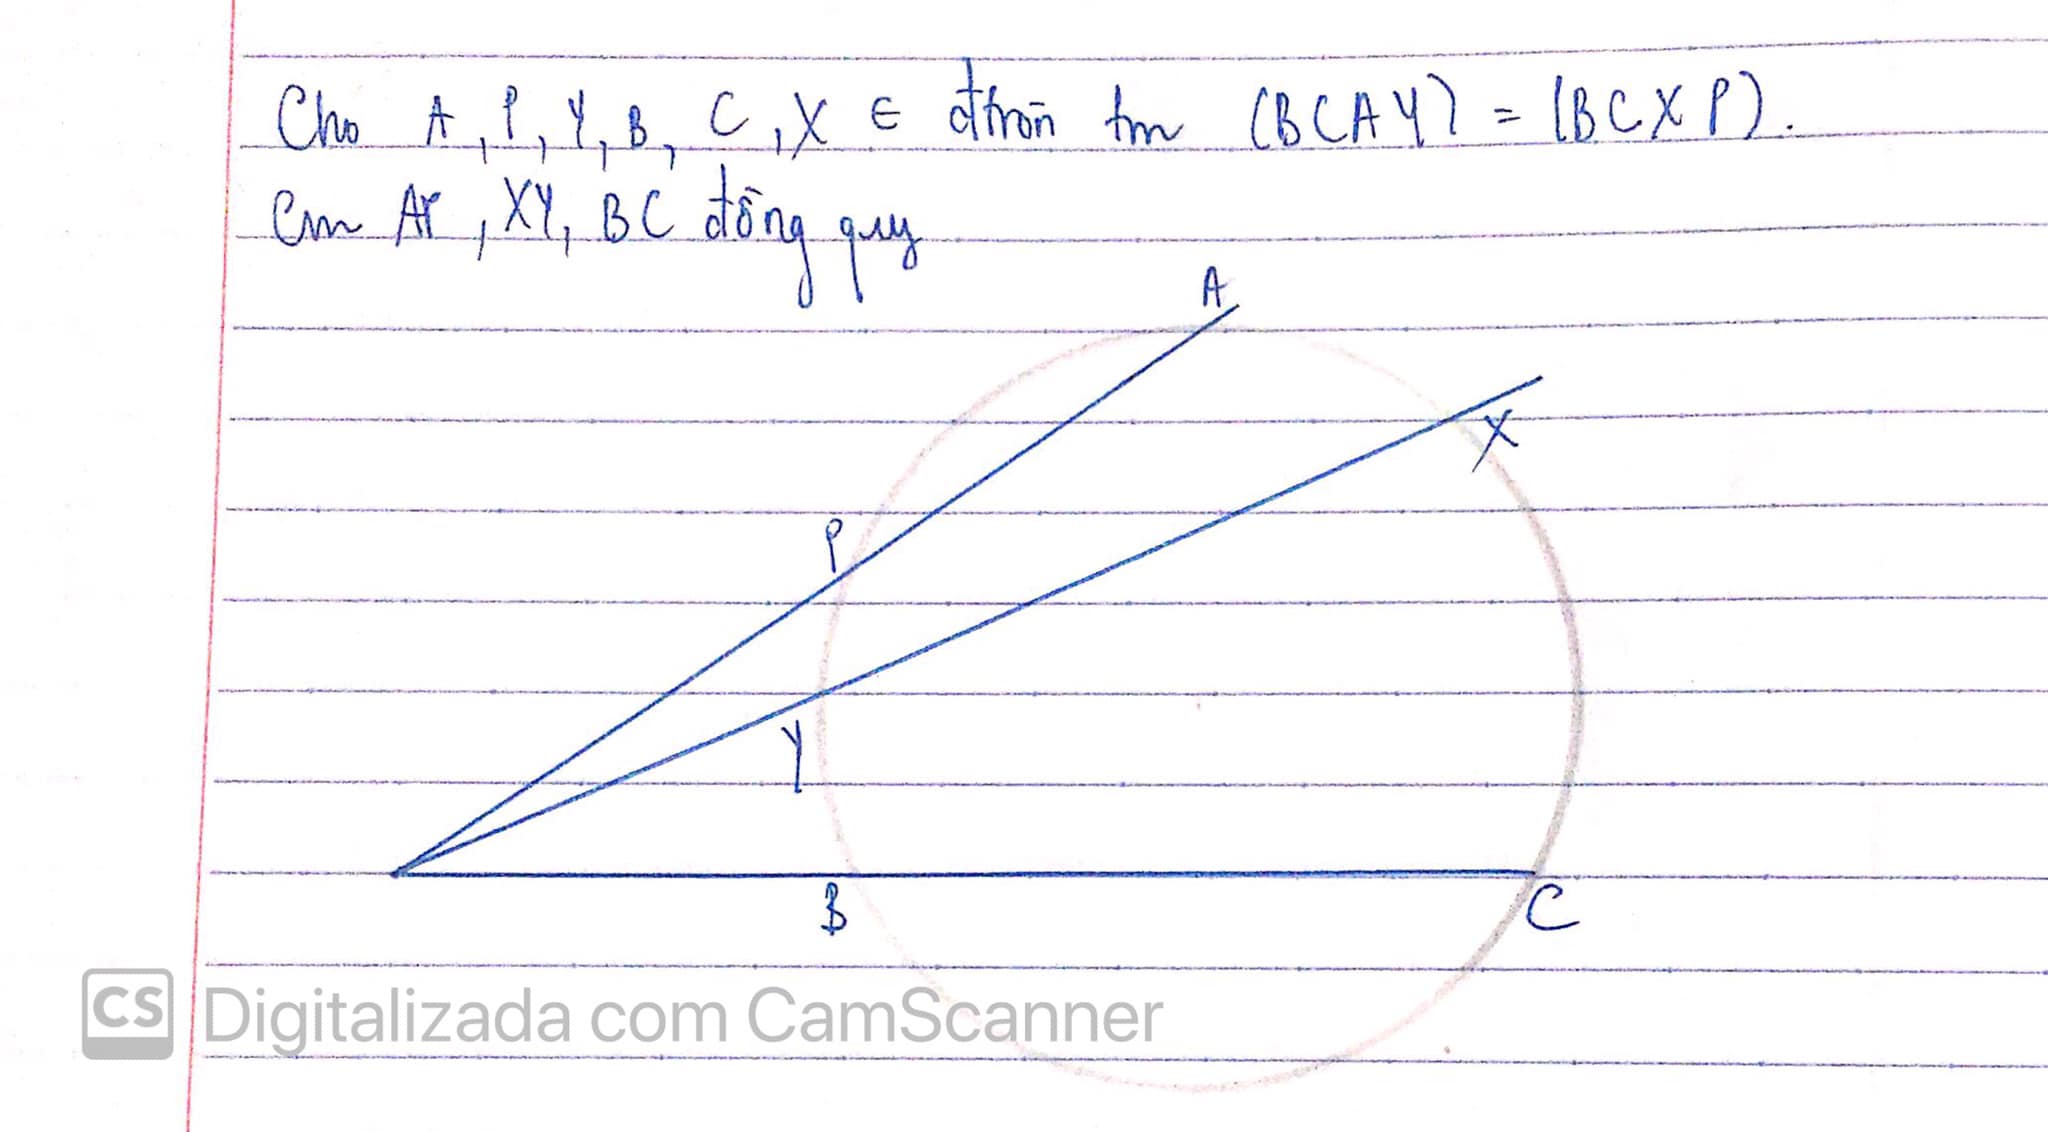 Cho A, P, Y, B, C, X ∈ đtròn tm (BCAY) = (BCXP).
Cm AP, XY, BC đồng quy
A
X
P
Y
B
C
CS Digitalizada com CamScanner